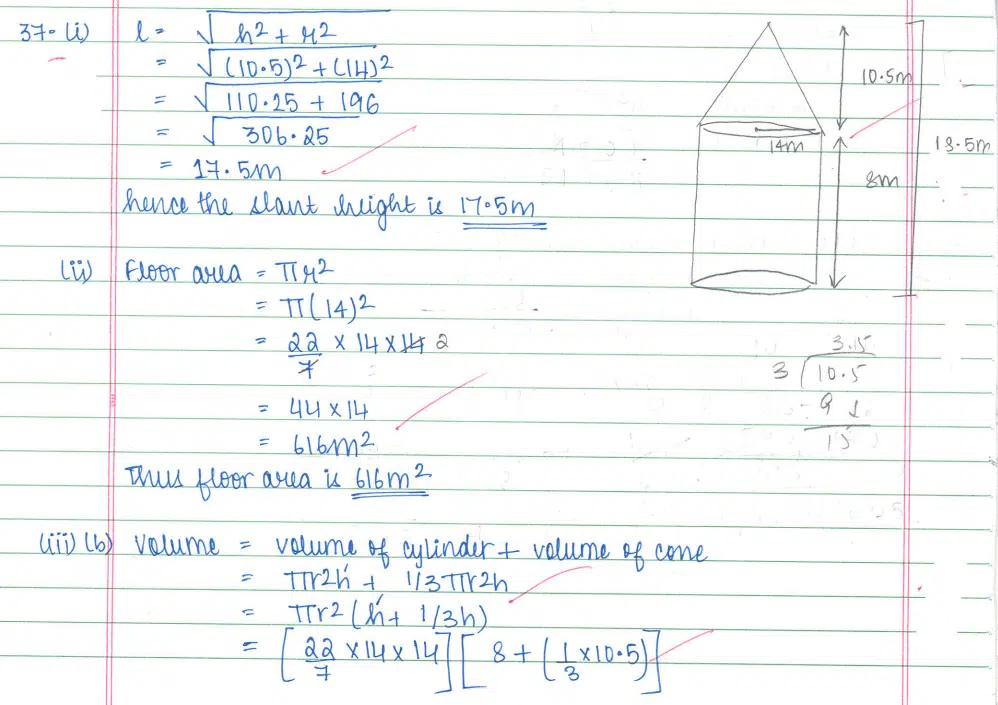 37. (i) l = √h² + r²
= √(10.5)² + (14)²
= √110.25 + 196
= √306.25
= 17.5m
hence the slant height is 17.5m
10.5m
14m
8m
18.5m
(ii) Floor area = πr²
= π(14)²
= 22/7 × 14 × 14 2
= 44 × 14
= 616m²
Thus floor area is 616m²
3.15
3 10.5
- 9 1
15
(iii) (b) Volume = volume of cylinder + volume of cone
= πr2h' + 1/3πr2h
= πr2 (h' + 1/3h)
= [22/7 × 14 × 14] [8 + (1/3 × 10.5)]